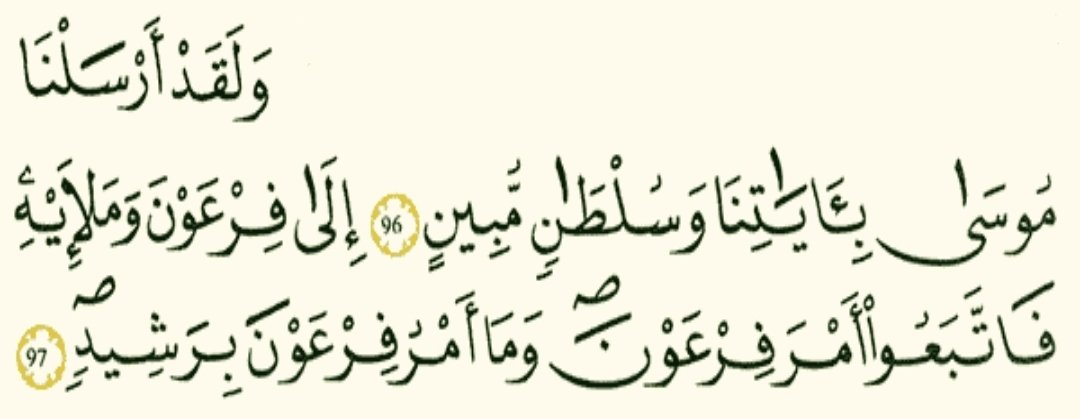 وَلَقَدْ أَرْسَلْنَا
مُوسَىٰ بِـَٔايَـٰتِنَا وَسُلْطَـٰنٍ مُّبِينٍ 96 إِلَىٰ فِرْعَوْنَ وَمَلَإِيْهِۦ
فَٱتَّبَعُوٓا۟ أَمْرَ فِرْعَوْنَ ۖ وَمَآ أَمْرُ فِرْعَوْنَ بِرَشِيدٍ ۖ 97